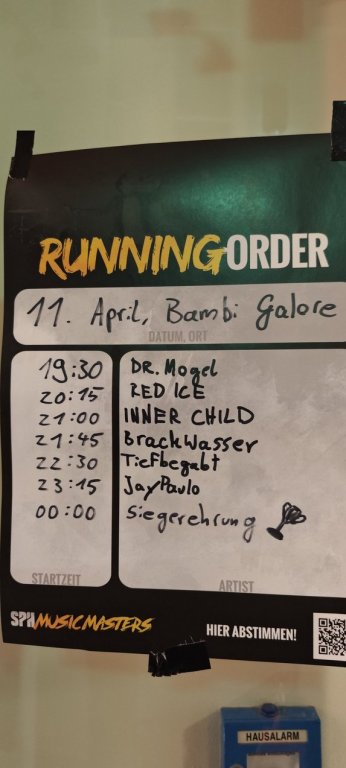 RUNNING ORDER
11. April, Bambi Galore
DATUM, ORT
19:30 DR. Mogel
20:15 RED ICE
21:00 INNER CHILD
21:45 BrackWasser
22:30 Tiefbegabt
23:15 JayPaulo
00:00 Siegerehrung
STARTZEIT ARTIST
SPH MUSIC MASTERS HIER ABSTIMMEN!
HAUSALARM